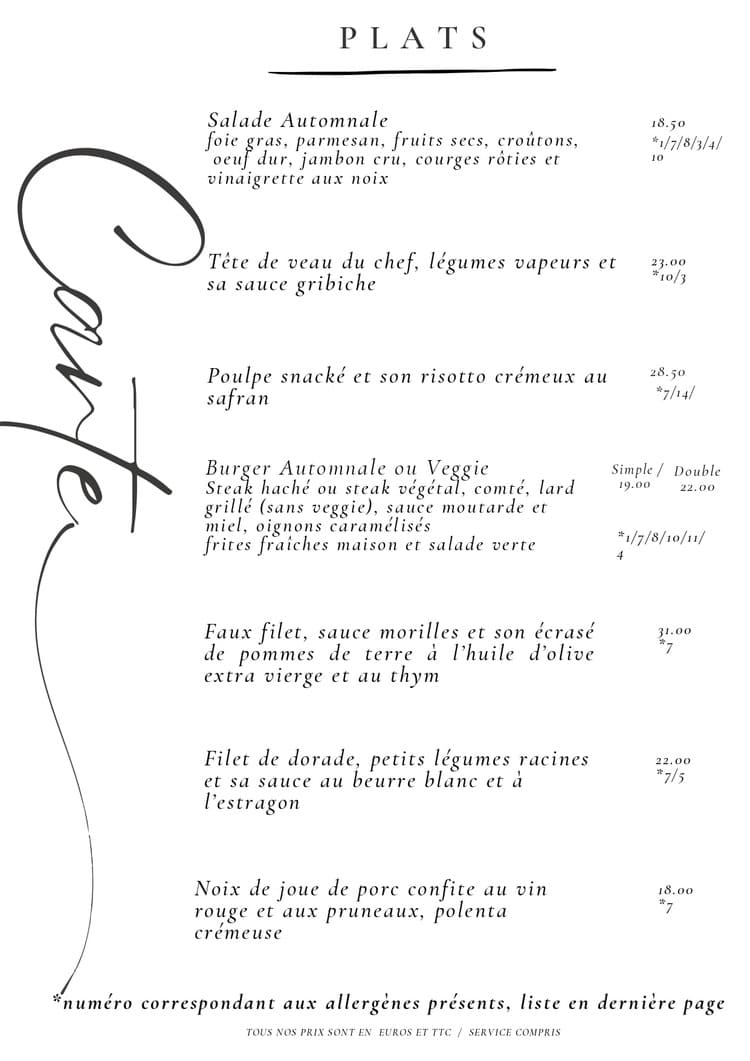 PLATS
Carte
Salade Automnale
18.50
foie gras, parmesan, fruits secs, croûtons,
*1/7/8/3/4/
oeuf dur, jambon cru, courges rôties et
10
vinaigrette aux noix
Tête de veau du chef, légumes vapeurs et
23.00
sa sauce gribiche
*10/3
Poulpe snacké et son risotto crémeux au
28.50
safran
*7/14/
Burger Automnale ou Veggie
Simple / Double
Steak haché ou steak végétal, comté, lard
19.00 22.00
grillé (sans veggie), sauce moutarde et
miel, oignons caramélisés
*1/7/8/10/11/
frites fraîches maison et salade verte
4
Faux filet, sauce morilles et son écrasé
31.00
de pommes de terre à l'huile d'olive
*7
extra vierge et au thym
Filet de dorade, petits légumes racines
22.00
et sa sauce au beurre blanc et à
*7/5
l'estragon
Noix de joue de porc confite au vin
18.00
rouge et aux pruneaux, polenta
*7
crémeuse
*numéro correspondant aux allergènes présents, liste en dernière page
TOUS NOS PRIX SONT EN EUROS ET TTC / SERVICE COMPRIS